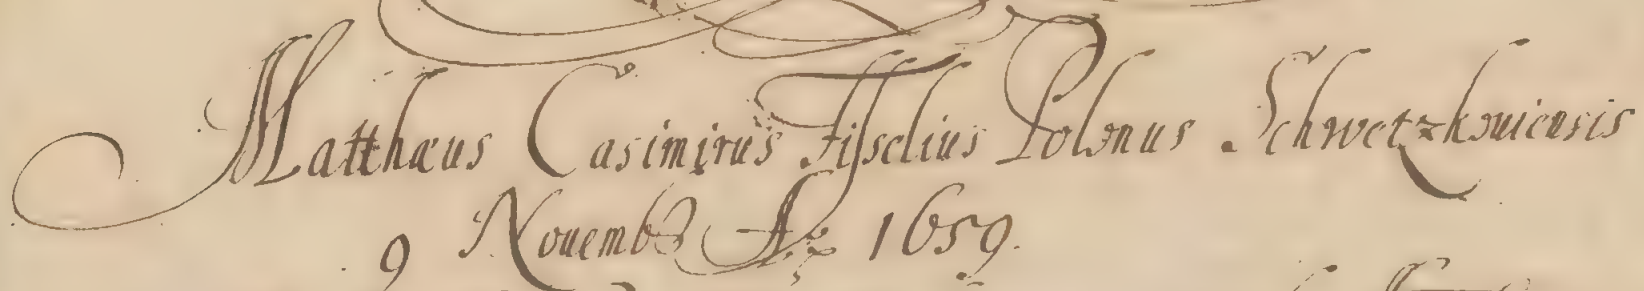 Matthæus Casimirus Fisselius Polonus Schwetzkoviensis
9 Novemb: Aº 1659.